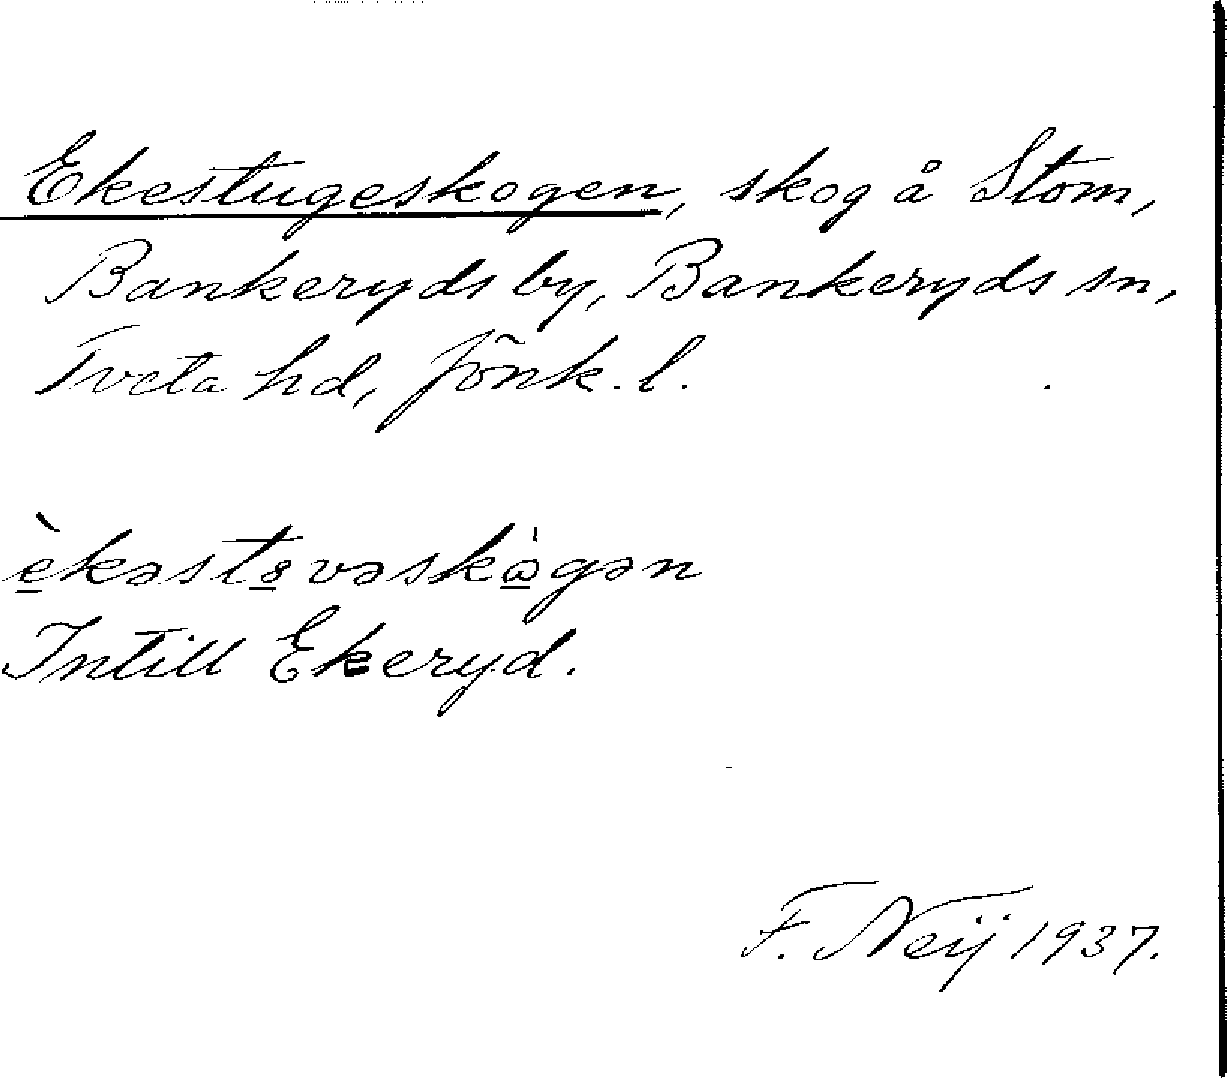 Ekestugeskogen, skog å Stom,
Bankeryds by, Bankeryds sn,
Tveta hd, Jönk. l.
Intill Ekeryd.
F. Neij 1937.